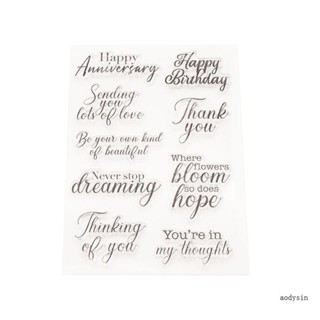 Happy
Anniversary
Happy
Birthday
Sending
you
lots of love
Thank
you
Be your own kind
of beautiful
Where
flowers
bloom
so does
hope
Never stop
dreaming
Thinking
of you
You're in
my thoughts
aodysin